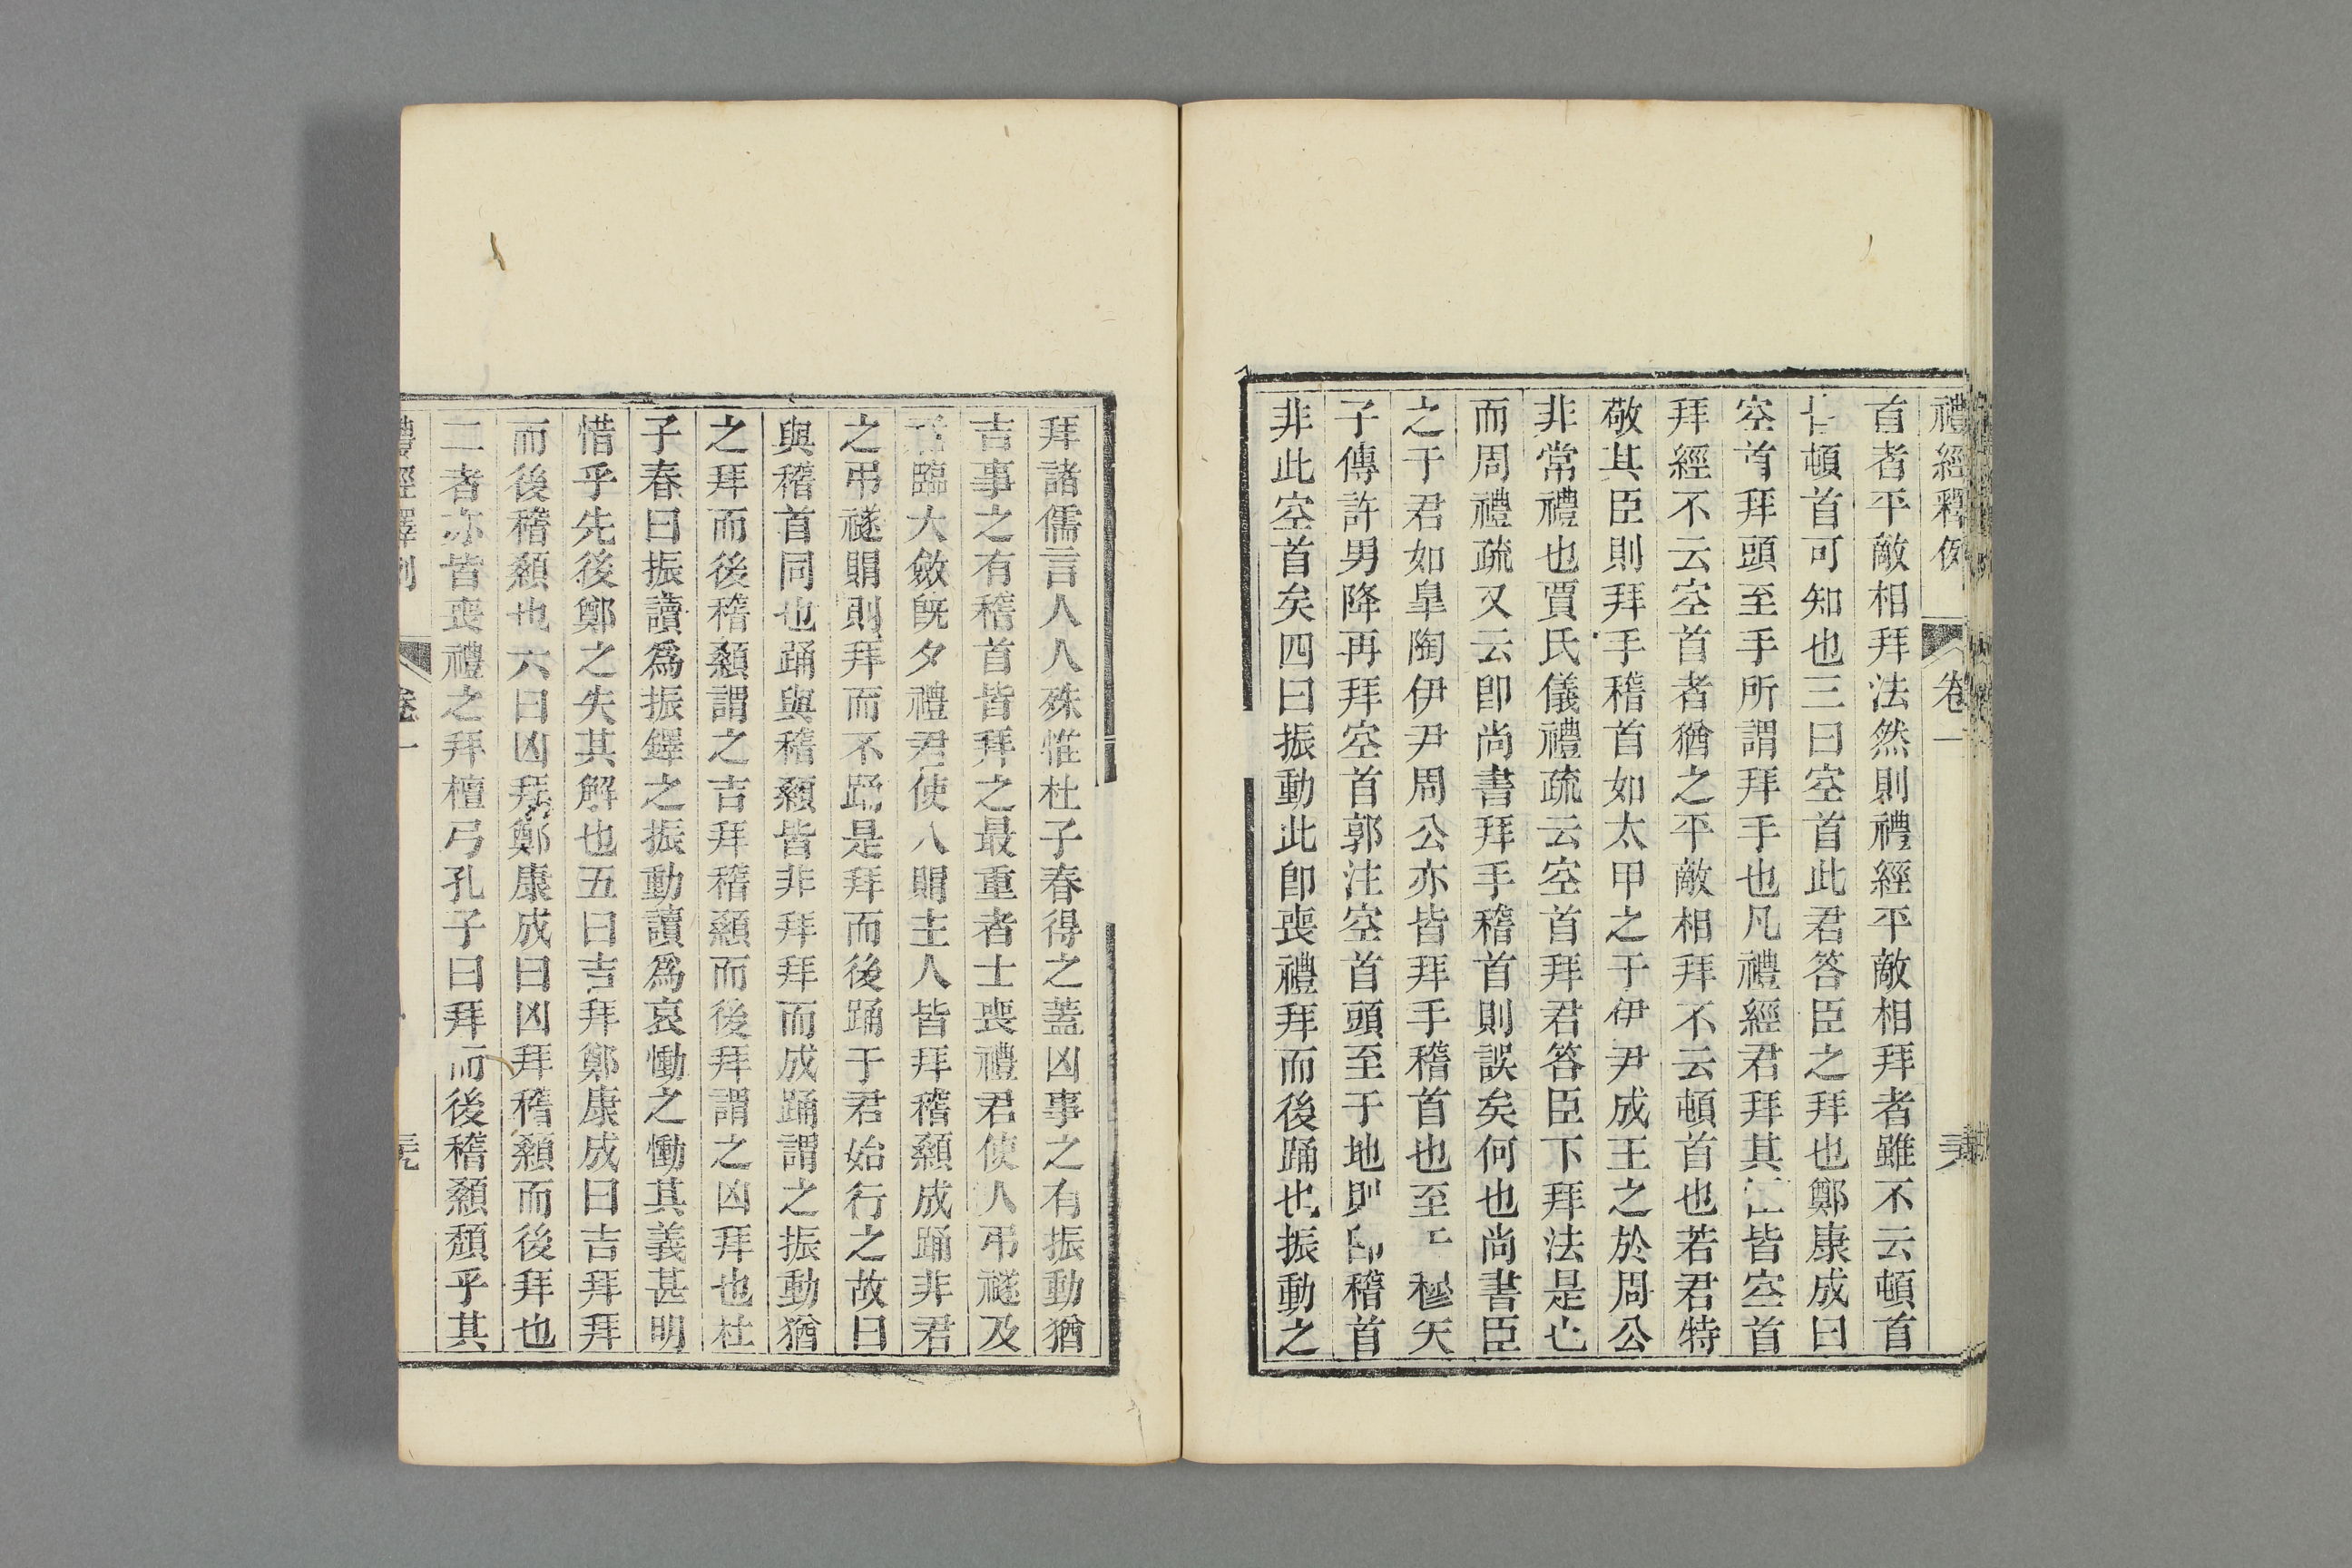 禮經釋例 卷一
首者平敵相拜法然則禮經平敵相拜者雖不云頓首
皆頓首可知也三曰空首此君答臣之拜也鄭康成曰
空首拜頭至手所謂拜手也凡禮經君拜其臣皆空首
拜經不云空首者猶之平敵相拜不云頓首也若君特
敬其臣則拜手稽首如太甲之于伊尹成王之於周公
非常禮也賈氏儀禮疏云空首拜君答臣下拜法是也
而周禮疏又云卽尚書拜手稽首則誤矣何也尚書臣
之于君如皐陶伊尹周公亦皆拜手稽首也至于穆天
子傳許男降再拜空首郭注空首頭至于地則卽稽首
非此空首矣四曰振動此卽喪禮拜而後踊也振動之
拜諸儒言人人殊惟杜子春得之蓋凶事之有振動猶
吉事之有稽首皆拜之最重者士喪禮君使人弔禭及
臨大斂旣夕禮君使人賵主人皆拜稽顙成踊非君
之弔禭賵則拜而不踊是拜而後踊于君始行之故曰
與稽首同也踊與稽顙皆非拜拜而成踊謂之振動猶
之拜而後稽顙謂之吉拜稽顙而後拜謂之凶拜也杜
子春曰振讀爲振鐸之振動讀爲哀慟之慟其義甚明
惜乎先後鄭之失其解也五曰吉拜鄭康成曰吉拜拜
而後稽顙也六曰凶拜鄭康成曰凶拜稽顙而後拜也
二者亦皆喪禮之拜檀弓孔子曰拜而後稽顙頹乎其
禮經釋例 卷一